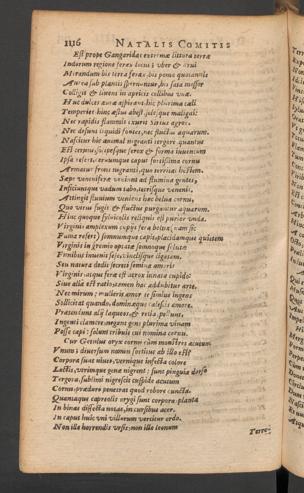 1116 NATALIS COMITIS
Est prope Gangaridas extremæ littora terræ
Indorum regione ferax locus & vber & arui
Mirandum bis terra ferax, bis pomo quotannis
Colligit & iuueni in apricis collibus vuæ.
Huc dulces auræ aspirant, hic plurima cæli
Temperies: hinc æstus abest
Nec rapidis flammis exurit Sirius agros.
Nec desunt liquidi fontes, nec fluctus aquarum.
Nascitur hic animal nigranti tergore, quantus
Et corpus ferox & forma iuuencum
Ipsa refert: vernumque caput fortissima cornu
Armatur frons nigranti, quo terreat hostem.
Sæpe veneniferæ veniunt ad flumina gentes,
Inficiuntque vadum tabo, tetrisque venenis.
Attingit fluuium veniens hæc belua cornu,
Quo virus fugit & fluctus purgantur aquarum.
Hinc quoque syluicolis reliquis est purior vnda.
Virginis amplexum cupit fera belua: nam sic
Fama refert) somnumque capit placidamque quietem
Virginis in gremio positæ somnoque soluta
Funibus inuenit sese vinclisque ligatam.
Seu natura dedit secreti semina amoris
Virginis: atque feræ est atrox innata cupido:
Siue alia est ratio: tamen hac adducitur arte.
Nec mirum: mulieris amor te similus ingens
Sollicitat quando, dominæque calescis amore.
Præsentimq; alij laqueos, & retia ponunt,
Ingenti clamore angunt gens plurima vinum
Posse capi: solum tribuit cui nomina cornu.
Cur Getulus oryx cornu cùm monstret acutum
Vnum: diuersum numen fortitus ab illo est?
Corpora sunt niueo, verùmque infecta colore
Lactis, verùmque genæ nigrent: sunt pinguia dorso
Tergora: sublimi nigrescit cuspide acutum
Cornu: præduro penetrat quod robore cuncta.
Quamuque capreolis orygi sunt corpora: planta
In binas dissecta notas, in cursibus acer.
In caput huic vni villorum vertitur ordo.
Non illa horrendis vrsis: non illa leonum
Terre-